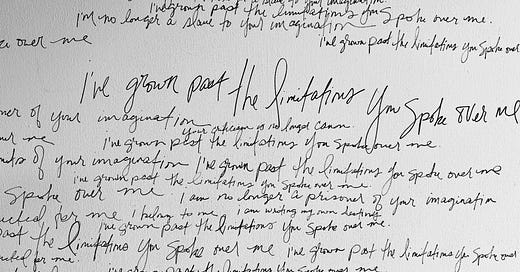 I've grown past the limitations you spoke over me.
I'm no longer a slave to your imagination
over me
I've grown past the limitations you spoke over
I've grown past the limitations you spoke over me
of your imagination
your criticism is no longer canon.
I've grown past the limitations you spoke over me.
of your imagination I've grown past the limitations you spoke over me
I've grown past the limitations you spoke over me.
spoke over me I am no longer a prisoner of your imagination
for me I belong to me I am writing my own destiny
I've grown past the limitations you spoke over me.
past the limitations you spoke over me I've grown past the limitations you spoke over
for me.
I've grown past the limitations you spoke over me